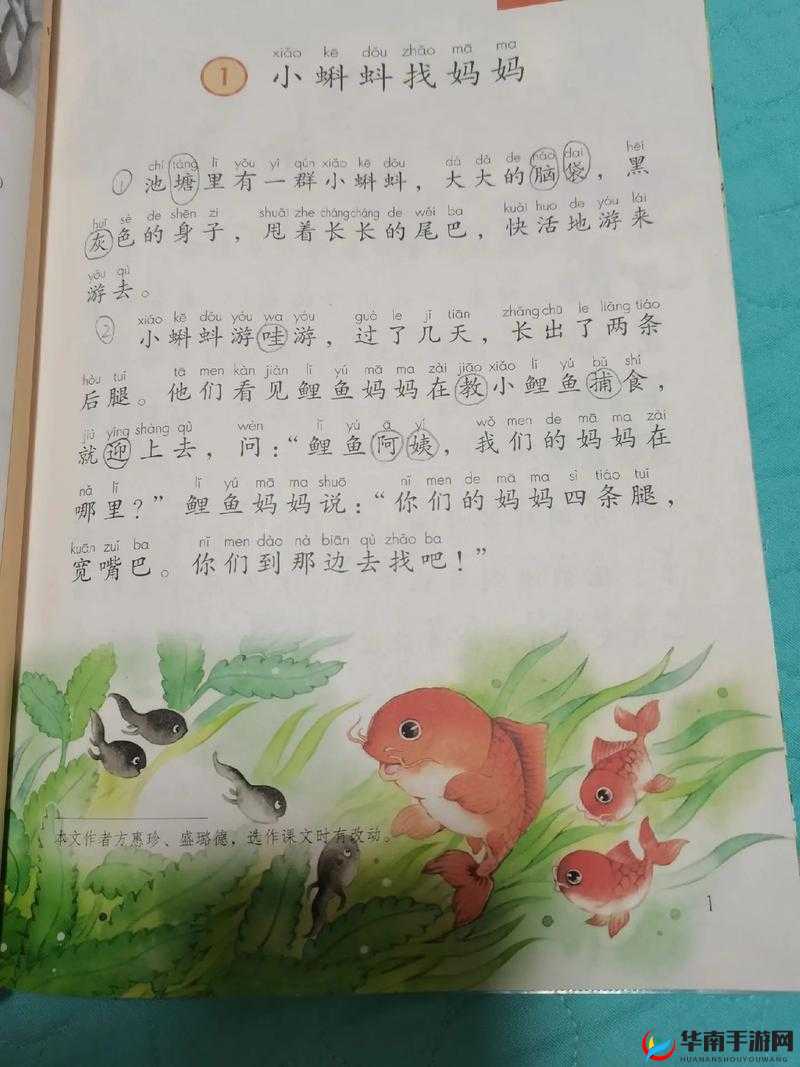 xiǎo kē dǒu zhǎo mā ma
1 小蝌蚪找妈妈
chí táng lǐ yǒu yì qún xiǎo kē dǒu dà dà de nǎo dai hēi
① 池塘里有一群小蝌蚪，大大的脑袋，黑
huī sè de shēn zi shuǎi zhe cháng cháng de wěi ba kuài huo de yóu lái
灰色的身子，甩着长长的尾巴，快活地游来
yóu qù
游去。
xiǎo kē dǒu yóu wa yóu guò le jǐ tiān zhǎng chū le liǎng tiáo
② 小蝌蚪游哇游，过了几天，长出了两条
hòu tuǐ tā men kàn jiàn lǐ yú mā ma zài jiāo xiǎo lǐ yú bǔ shí
后腿。他们看见鲤鱼妈妈在教小鲤鱼捕食，
jiù yíng shàng qù wèn lǐ yú ā yí wǒ men de mā ma zài
就迎上去，问：“鲤鱼阿姨，我们的妈妈在
nǎ lǐ lǐ yú mā ma shuō nǐ men de mā ma sì tiáo tuǐ
哪里？”鲤鱼妈妈说：“你们的妈妈四条腿，
kuān zuǐ ba nǐ men dào nà biān qù zhǎo ba
宽嘴巴。你们到那边去找吧！”
本文作者方惠珍、盛璐德，选作课文时有改动。
1
华南手游网
HUANANSHOUYOUWANG